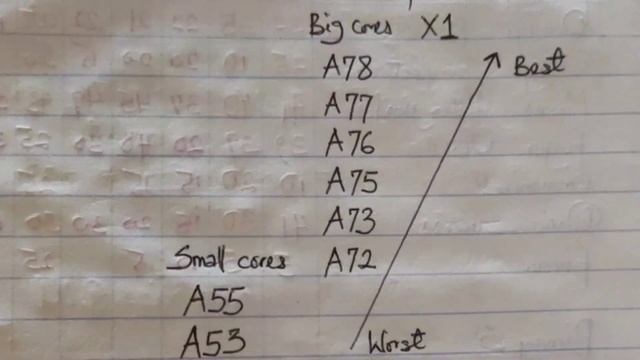 Big cores X1
A78 Best
A77
A76
A75
A73
Small cores A72
A55
A53 Worst